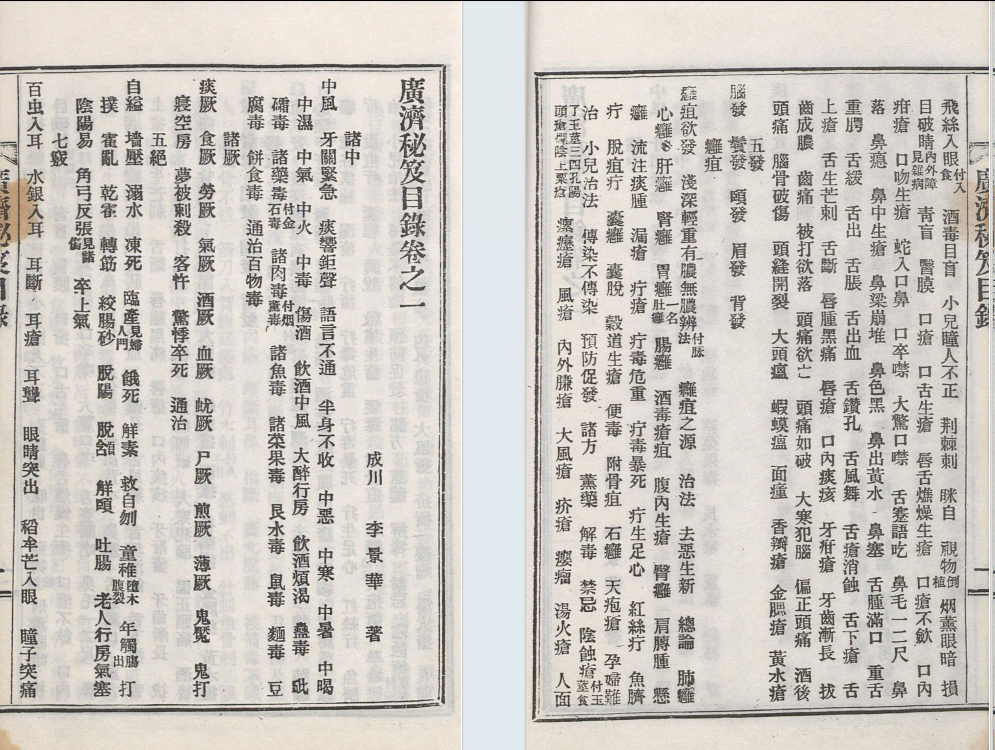 廣濟秘笈目錄卷之一
成川 李景華 著
諸中
中風 牙關緊急 痰響鉅聲 語言不通 半身不收 中惡 中寒 中暑 中暍
中濕 中氣 中火 中毒 傷酒 飲酒中風 大醉行房 飲酒煩渴 蠱毒 砒
礵毒 諸藥毒付金石毒 諸肉毒付烟薰毒 諸魚毒 諸菜果毒 艮水毒 鼠毒 麵毒 豆
腐毒 餠食毒 通治百物毒
諸厥
痰厥 食厥 勞厥 氣厥 酒厥 血厥 蚘厥 尸厥 煎厥 薄厥 鬼魘 鬼打
寢空房 夢被刺殺 客忤 驚悸卒死 通治
五絕
自縊 墻壓 溺水 凍死 臨產見婦人門 餓死 觧素 救自刎 童稚墮木腹裂 年觸腸出 打
撲 霍亂 乾霍 轉筋 絞腸砂 脫陽 脫頷 觧㑋 吐腸 老人行房氣塞
陰陽易 角弓反張見諸傷 卒上氣
七竅
百虫入耳 水銀入耳 耳斷 耳瘡 耳聾 眼睛突出 稻牟芒入眼 瞳子突痛
廣濟秘笈目錄
飛絲入眼付入食 酒毒目盲 小兒瞳人不正 荆棘刺 眯目 視物倒植 烟薰眼暗 損
目破睛內外障見雜病 靑盲 瞖膜 口瘡 口舌生瘡 唇舌燋燥生瘡 口瘡不歛 口內
疳瘡 口吻生瘡 蛇入口鼻 口卒噤 大驚口噤 舌蹇語吃 鼻毛一二尺 鼻
落 鼻瘜 鼻中生瘡 鼻梁崩堆 鼻色黑 鼻出黃水 鼻塞 舌腫滿口 重舌
重腭 舌緩 舌出 舌脹 舌出血 舌鑽孔 舌風舞 舌瘡消蝕 舌下瘡 舌
上瘡 舌生芒刺 舌斷 唇腫黑痛 唇瘡 口內痰痎 牙疳瘡 牙齒漸長 拔
齒成膿 齒痛 被打欲落 頭痛欲亡 頭痛如破 大寒犯腦 偏正頭痛 酒後
頭痛 腦骨破傷 頭縫開裂 大頭瘟 蝦蟆瘟 面腫 香瓣瘡 金腮瘡 黃水瘡
五發
腦發 鬢發 頤發 眉發 背發
癰疽
癰疽欲發 淺深輕重有膿無膿辨法付脉 癰疽之源 治法 去惡生新 總論 肺癰
心癰 肝癰 腎癰 胃癰 腸癰 酒毒瘡疽 腹內生瘡 臀癰 肩膊腫 懸
癰 流注痰腫 漏瘡 疔瘡 疔毒危重 疔毒暴死 疔生足心 紅絲疔 魚臍
疔 脫疽疔 囊癰 囊脫 穀道生瘡 便毒 附骨疽 石癰 天疱瘡 孕婦難
治 小兒治法 傳染不傳染 預防促發 諸方 薰藥 解毒 禁忌 陰蝕瘡
瘰癧瘡 風瘡 內外臁瘡 大風瘡 疥瘡 癭瘤 湯火瘡 人面